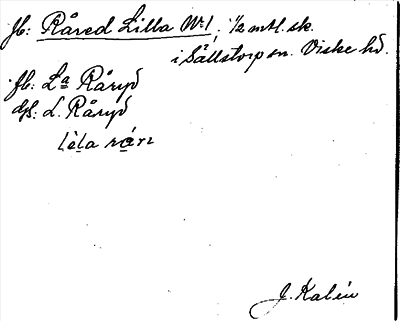 fb: Råred Lilla Nr 1, 1/2 mtl. sk.
i Sällstorp sn. Viske hd.
fb: La Råryd
dfs: L. Råryd
lèla rárz
J. Kalén